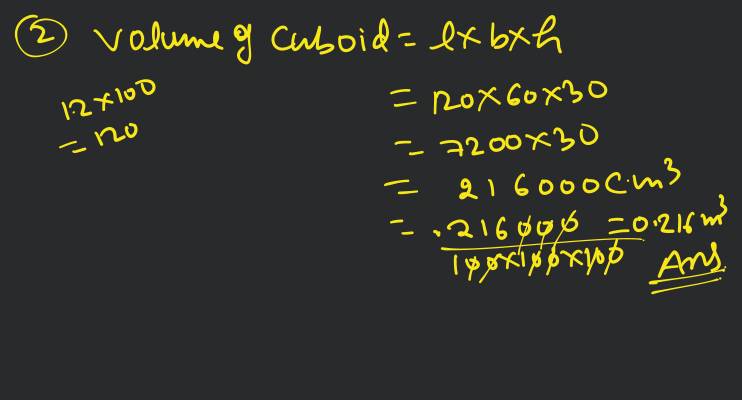 ② Volume of Cuboid = l×b×h
1.2×100
= 120
= 120×60×30
= 7200×30
= 216000cm³
= .216000 = 0.216m³
100×100×100 Ans